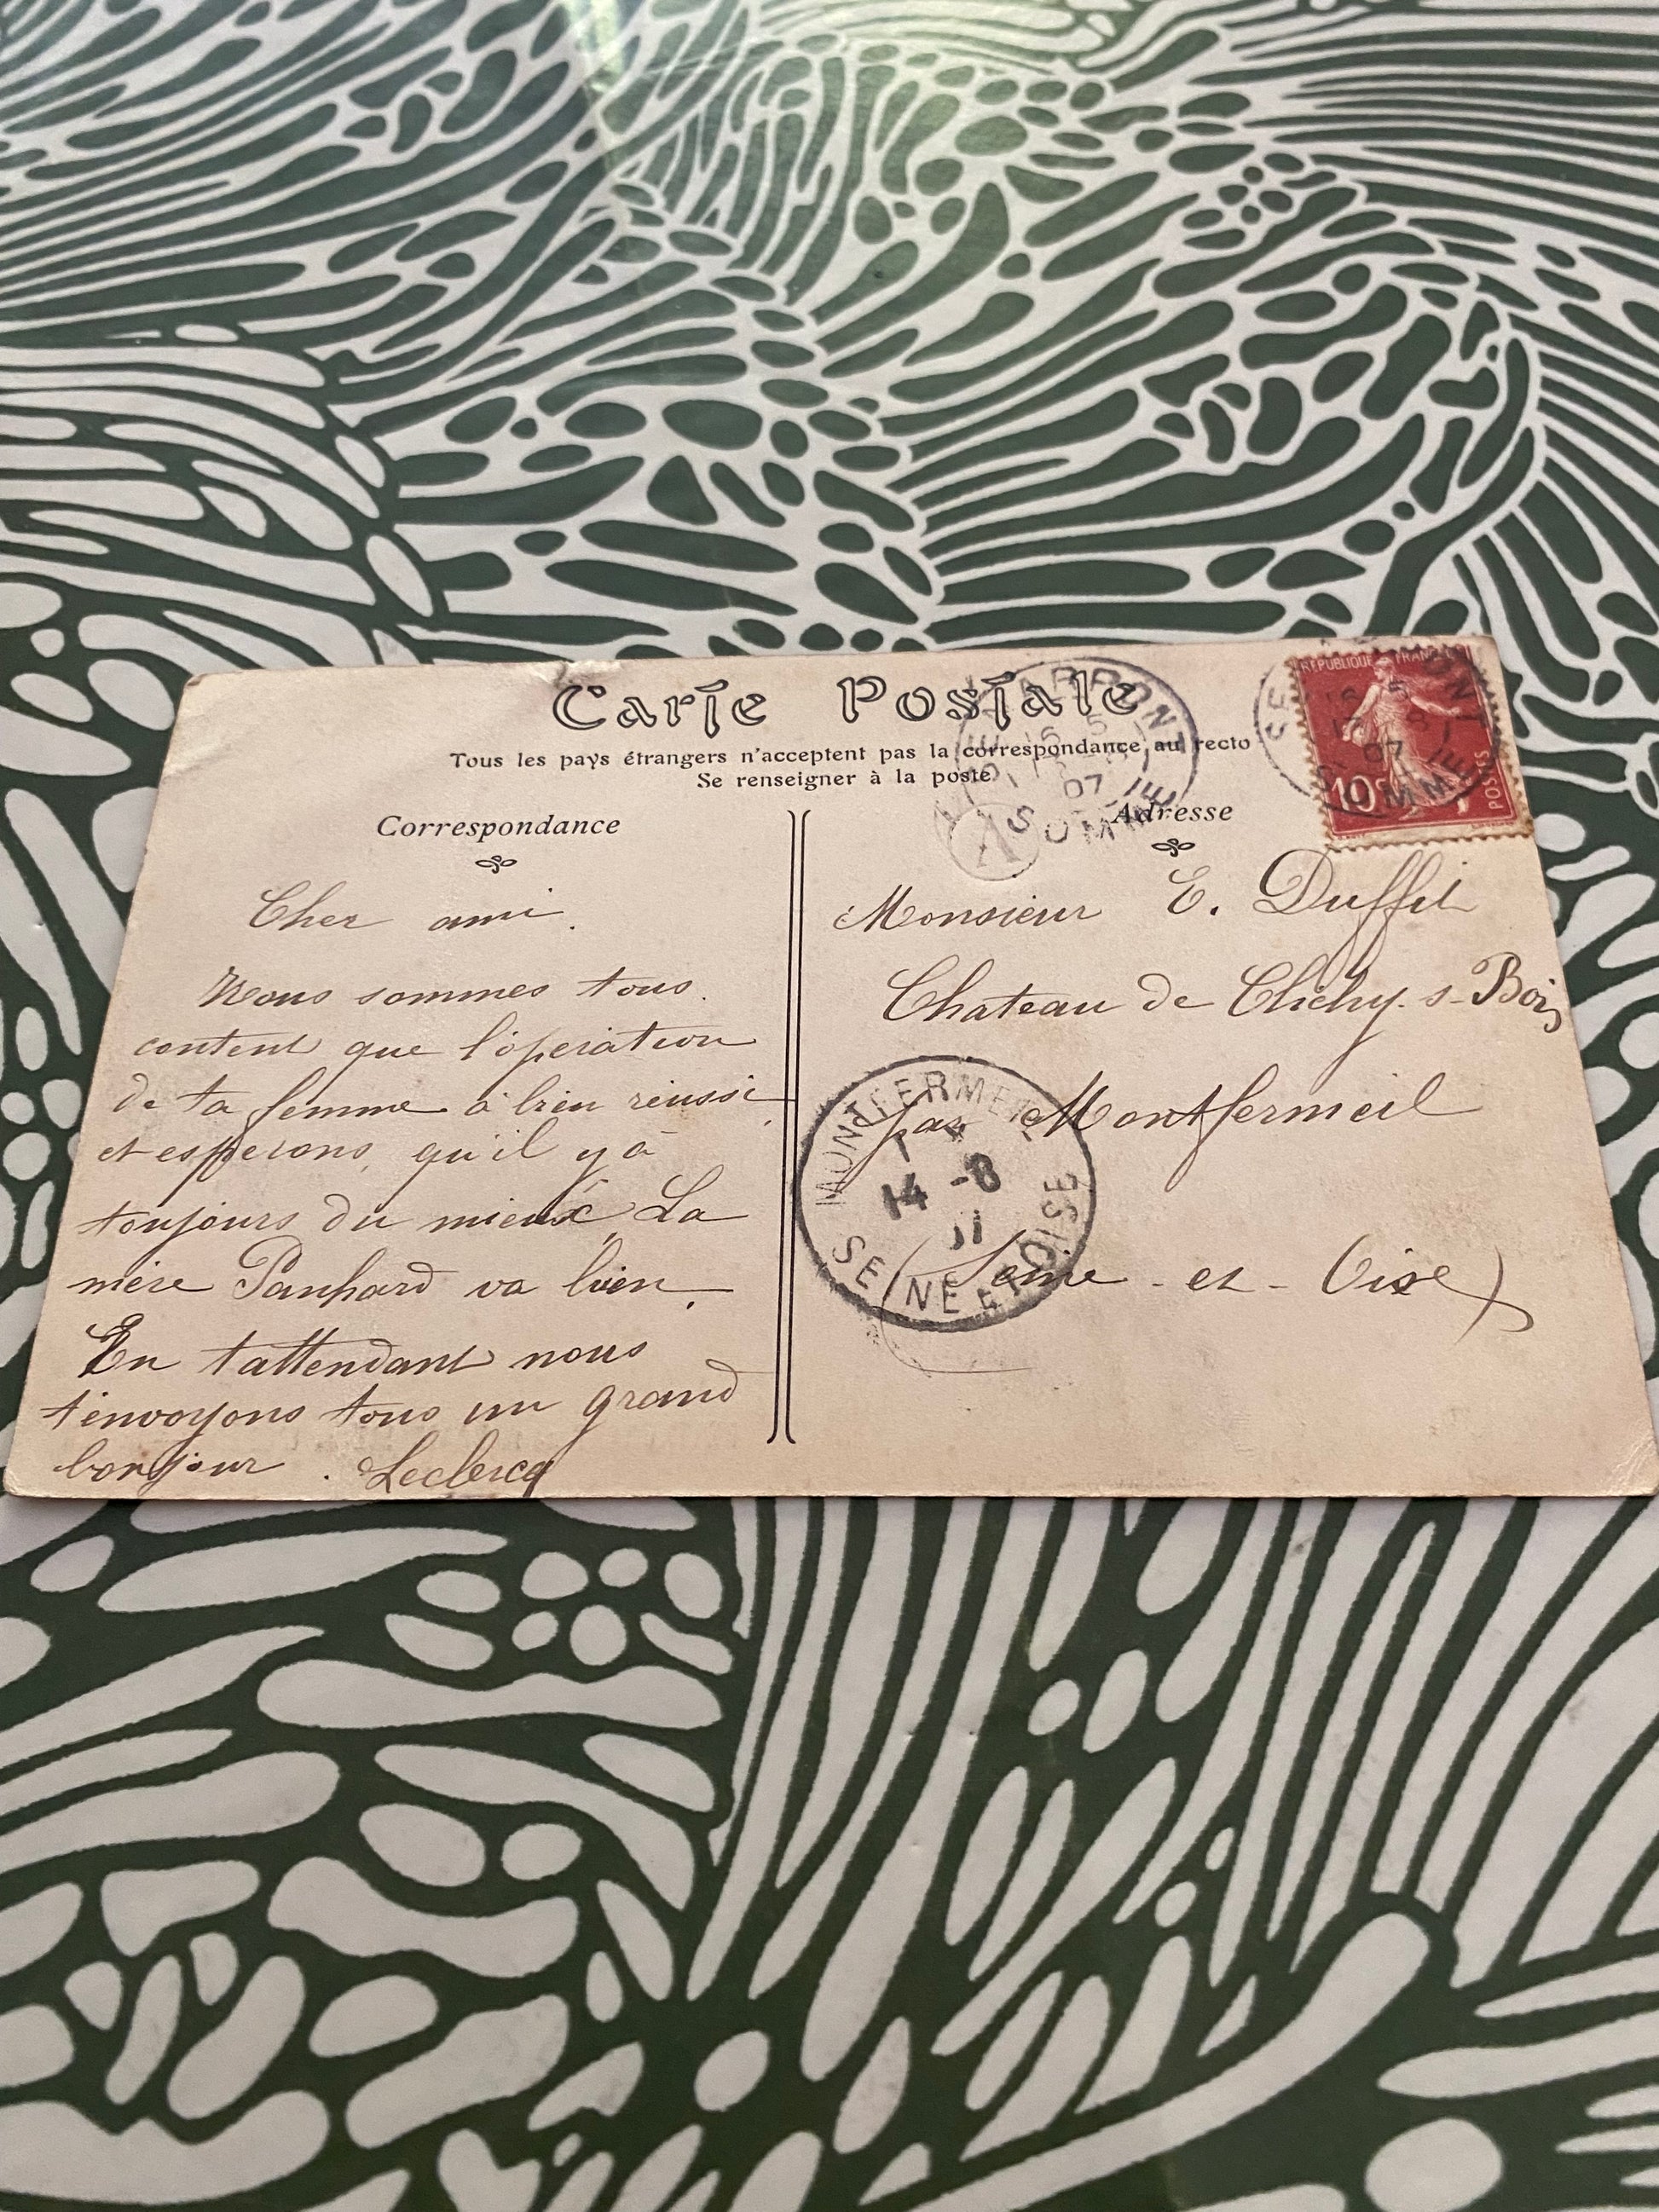 Carte Postale
Tous les pays étrangers n'acceptent pas la correspondance au recto
Se renseigner à la poste
Correspondance
Cher ami.
Nous sommes tous
content que l'opération
de ta femme à bien réussi
et esperons, qu'il y à
toujours du mieux. La
mère Panhard va bien.
En t'attendant nous
t'envoyons tous un grand
bonjour. Leclercq
Adresse
Monsieur E. Duffit
Chateau de Clichy-s-Bois
par Montfermeil
(Seine-et-Oise)
REPUBLIQUE FRANÇAISE
10c
POSTES
SOMME
07
SOMME
07
A
MONTFERMEIL
14 -8
SEINE ET OISE